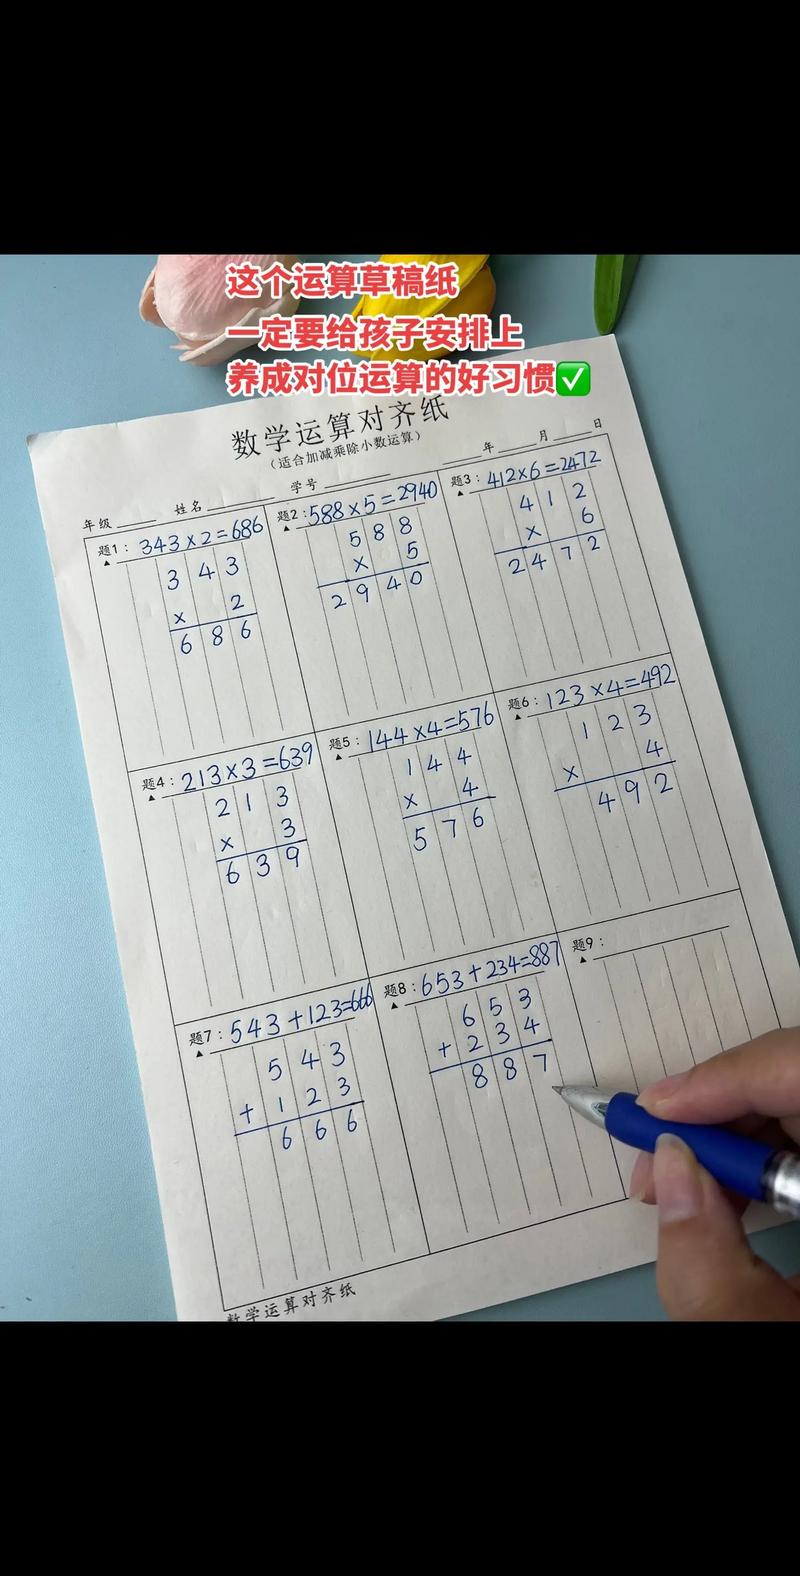 这个运算草稿纸
一定要给孩子安排上
养成对位运算的好习惯✅
数学运算对齐纸
（适合加减乘除小数运算）
年级 姓名 学号 年 月 日
题1：343×2=686
3 4 3
× 2
6 8 6
题2：588×5=2940
5 8 8
× 5
2 9 4 0
题3：412×6=2472
4 1 2
× 6
2 4 7 2
题4：213×3=639
2 1 3
× 3
6 3 9
题5：144×4=576
1 4 4
× 4
5 7 6
题6：123×4=492
1 2 3
× 4
4 9 2
题7：543+123=666
5 4 3
+ 1 2 3
6 6 6
题8：653+234=887
6 5 3
+ 2 3 4
8 8 7
题9：
数学运算对齐纸